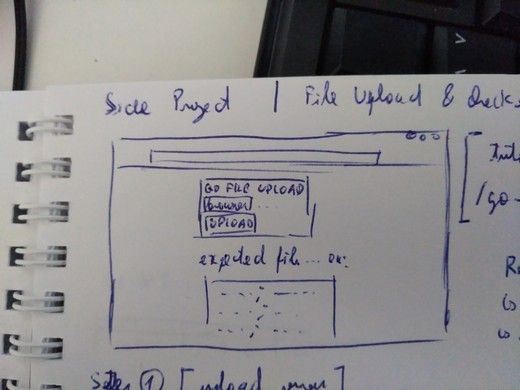 Side Project | File Upload & Checks
GO FILE UPLOAD
Browser ....
UPLOAD
expected file ... ok:
/go-
① [upload